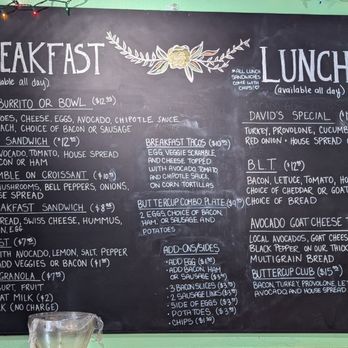 EAKFAST
able all day)
BURRITO OR BOWL ($12.95)
OES, CHEESE, EGGS, AVOCADO, CHIPOTLE SAUCE
ACH, CHOICE OF BACON OR SAUSAGE
SANDWICH ($12.95)
AVOCADO, TOMATO, HOUSE SPREAD
CON OR HAM
MBLE ON CROISSANT
USHROOMS, BELL PEPPERS, ONIONS,
E SPREAD
AKFAST SANDWICH
READ, SWISS CHEESE, HUMMUS,
ON, EGG
ST
WITH AVOCADO, LEMON, SALT, PEPPER
ADD VEGGIES OR BACON
GRANOLA
GURT, FRUIT
AT MILK (+2)
LK (NO CHARGE)
BREAKFAST TACOS
EGG, VEGGIE SCRAMBLE
AND CHEESE TOPPED
WITH AVOCADO, TOMATO
AND CHIPOTLE SAUCE,
ON CORN TORTILLAS
BUTTERCUP COMBO PLATE
2 EGGS, CHOICE OF BACON,
HAM, OR SAUSAGE, AND
POTATOES
ADD-ONS/SIDES
- ADD EGG
- ADD BACON, HAM
OR SAUSAGE
- 3 BACON SLICES
- 2 SAUSAGE LINKS
- SIDE OF EGGS
- POTATOES
- CHIPS
*ALL LUNCH
SANDWICHES
COME WITH
CHIPS!
LUNCH
(available all day)
DAVID'S SPECIAL
TURKEY, PROVOLONE, CUCUMB
RED ONION + HOUSE SPREAD
B.L.T
BACON, LETTUCE, TOMATO, HO
CHOICE OF CHEDDAR, OR GOA
CHOICE OF BREAD
AVOCADO GOAT CHEESE T
LOCAL AVOCADOS, GOAT CHEES
BLACK PEPPER, ON OUR THICK
MULTIGRAIN BREAD
BUTTERCUP CLUB
BACON, TURKEY, PROVOLONE, LET
AVOCADO AND HOUSE SPREAD